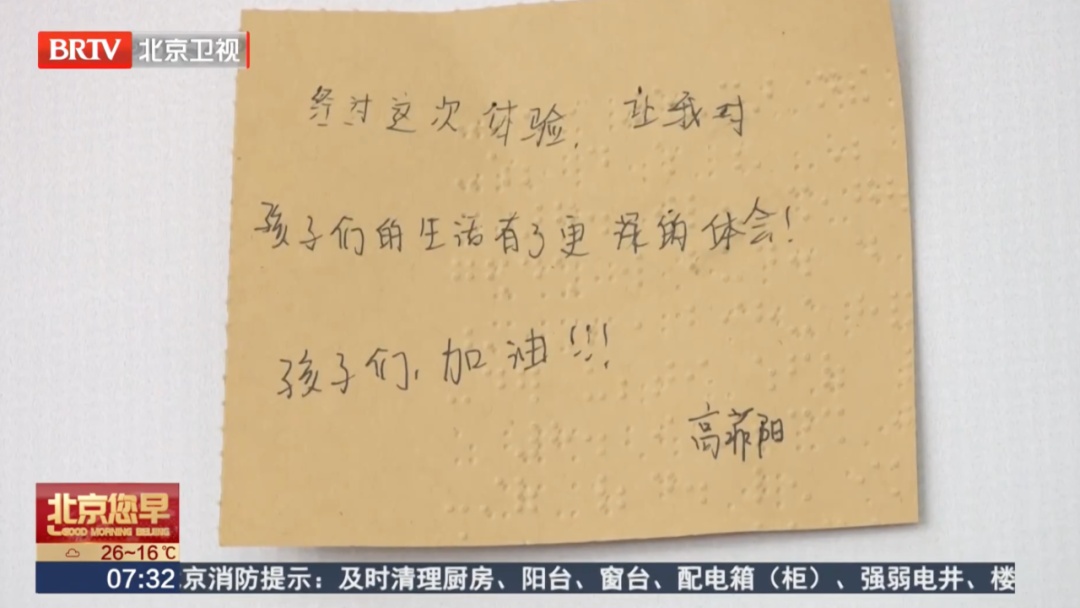 BRTV 北京卫视
经过这次体验，让我对
孩子们的生活有了更深的体会！
孩子们，加油！！！
高菲阳
北京您早
GOOD MORNING BEIJING
26~16℃
07:32 京消防提示：及时清理厨房、阳台、窗台、配电箱（柜）、强弱电井、楼